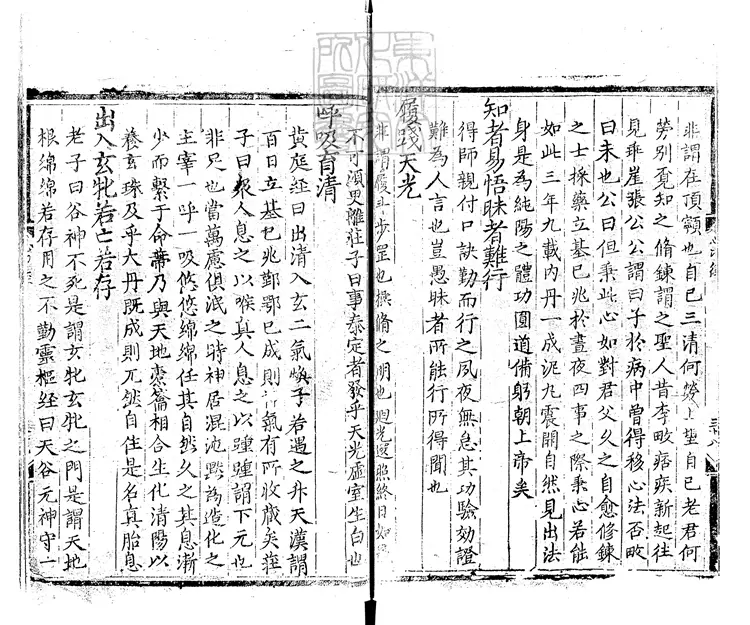 非謂在頂顖也自己三清何勞上望自己老君何
勞別覔知之脩鍊謂之聖人昔李畋痞疾新起往
見乖崖張公公謂曰子於病中曾得移心法否畋
曰未也公曰但秉此心如對君父久之自愈修鍊
之士採藥立基已兆於晝夜四事之際秉心若能
如此三年九載内丹一成泥九震開自然見出法
身是為純陽之體功圓道備躬朝上帝矣
知者易悟昧者難行
得師親付口訣勤而行之夙夜無怠其功驗効證
難為人言也豈愚昧者所能行所得聞也
履踐天光
非謂履斗步罡也操脩之期也廻光返照終日如
不可須臾離莊子曰事泰定者發乎天光虛室生白也
呼吸育清
黃庭經曰出清入玄二氣煥子若遇之升天漢謂
百日立基已兆鄞鄂已成則行氣有所收藏矣莊
子曰衆人息之以喉真人息之以踵踵謂下元也
非只也當萬慮俱泯之時神居混池黙為造化之
主宰一呼一吸悠悠綿綿任其自然久之其息漸
少而繫于命蒂乃與天地橐籥相合生化清陽以
養玄珠及乎大丹既成則兀然自住是名真胎息
出入玄牝若亡若存
老子曰谷神不死是謂玄牝玄牝之門是謂天地
根綿綿若存用之不勤靈樞經曰天谷元神守一